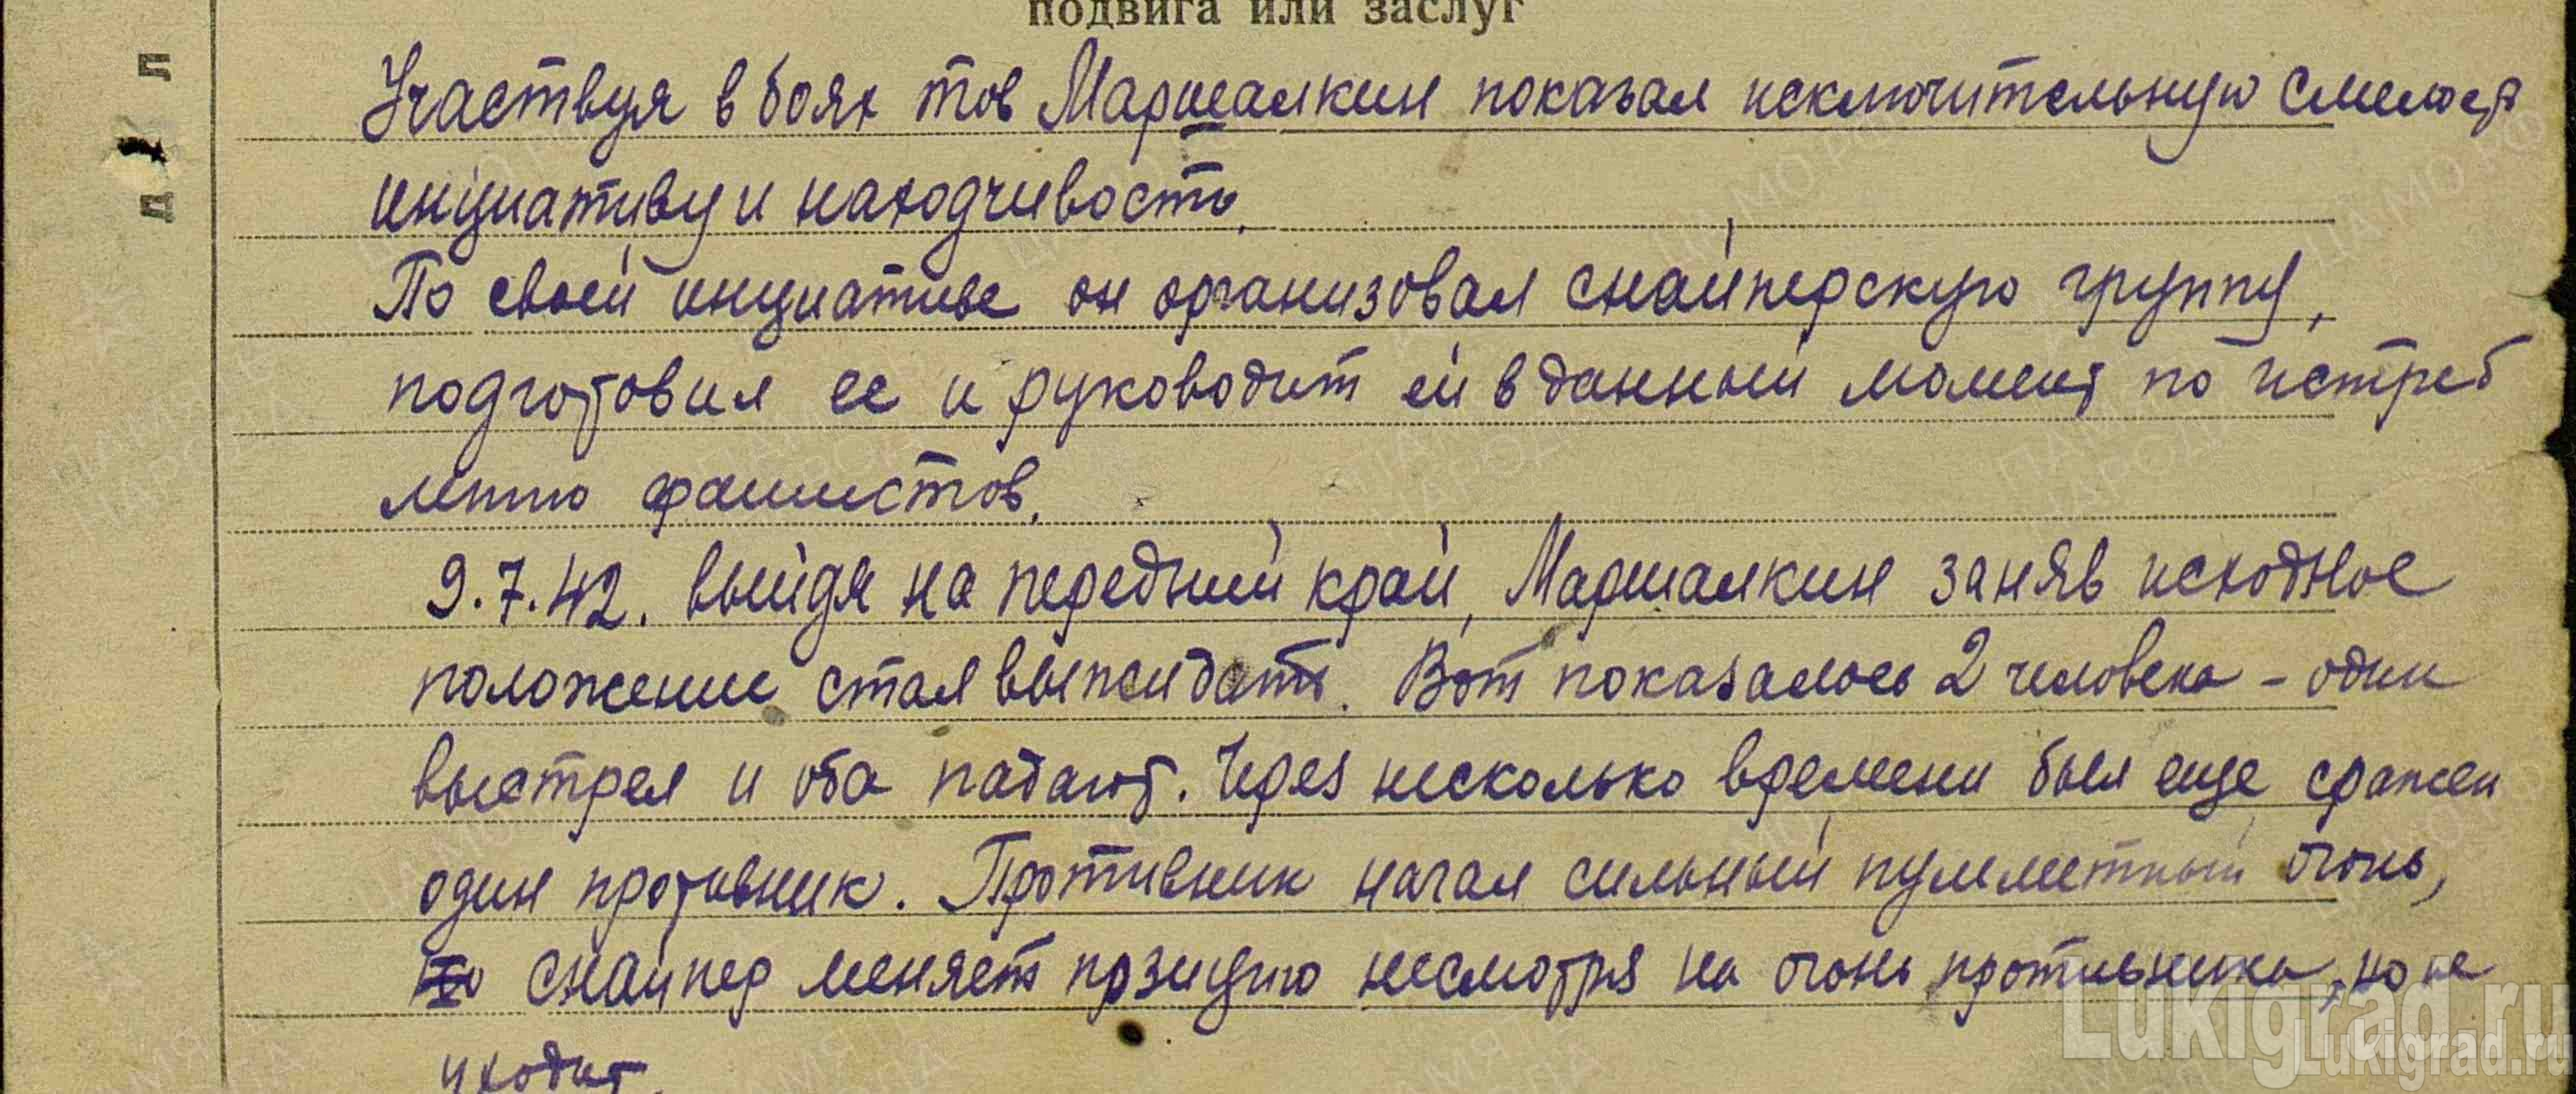 подвига или заслуг
Участвуя в боях тов Маршалкин показал исключительную смелость
инциативу и находчивость.
По своей инциативе он организовал снайперскую группу,
подготовил ее и руководит ей в данный момент по истреб
лению фашистов.
9.7.42. выйдя на передний край, Маршалкин заняв исходное
положение стал выжидать. Вот показалось 2 человека – один
выстрел и оба падают. Через несколько времени был еще сражен
один противник. Противник начал сильный пулеметный огонь,
но снайпер меняет позицию несмотря на огонь противника, но не
уходит.
Lukigrad.ru
Lukigrad.ru